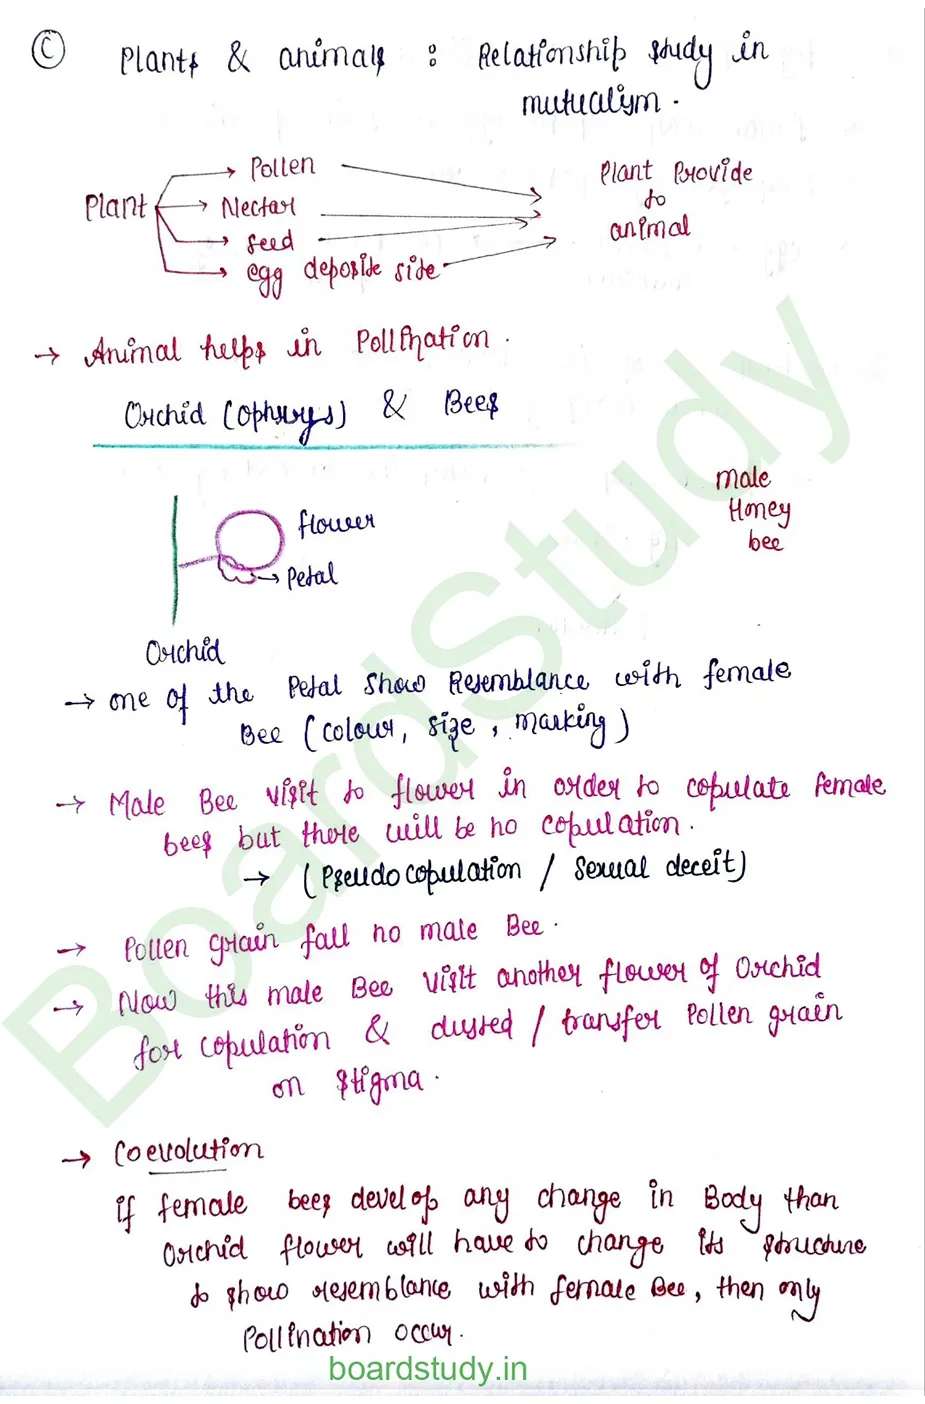 C Plants & animals : Relationship study in
mutualism.
Plant
Pollen
Nectar
seed
egg deposite side
Plant Provide
to
animal
→ Animal helps in Pollination.
Orchid (ophrys) & Bees
male
Honey
bee
flower
→ Petal
Orchid
→ one of the Petal show Resemblance with female
Bee (colour, size, marking)
→ Male Bee visit to flower in order to copulate female
bees but there will be no copulation.
→ (Pseudocopulation / Sexual deceit)
→ Pollen grain fall no male Bee.
→ Now this male Bee visit another flower of Orchid
for copulation & dusted / transfer Pollen grain
on stigma.
→ Coevolution
if female bees develop any change in Body than
Orchid flower will have to change its structure
to show resemblance with female Bee, then only
Pollination occur.
BoardStudy
boardstudy.in